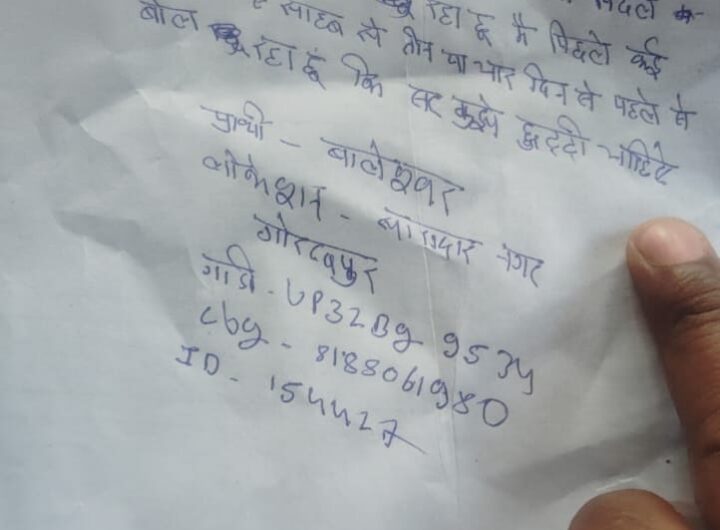 रहा हूँ
साहब से तीन या चार दिन से पहले से
बोल रहा हूँ कि सर मुझे छुट्टी चाहिए
प्रार्थी - बालेश्वर
लोकेशन - नगर
गोरखपुर
गाडी - UP32Bg 9534
Cbg - 8188061980
ID - 154427